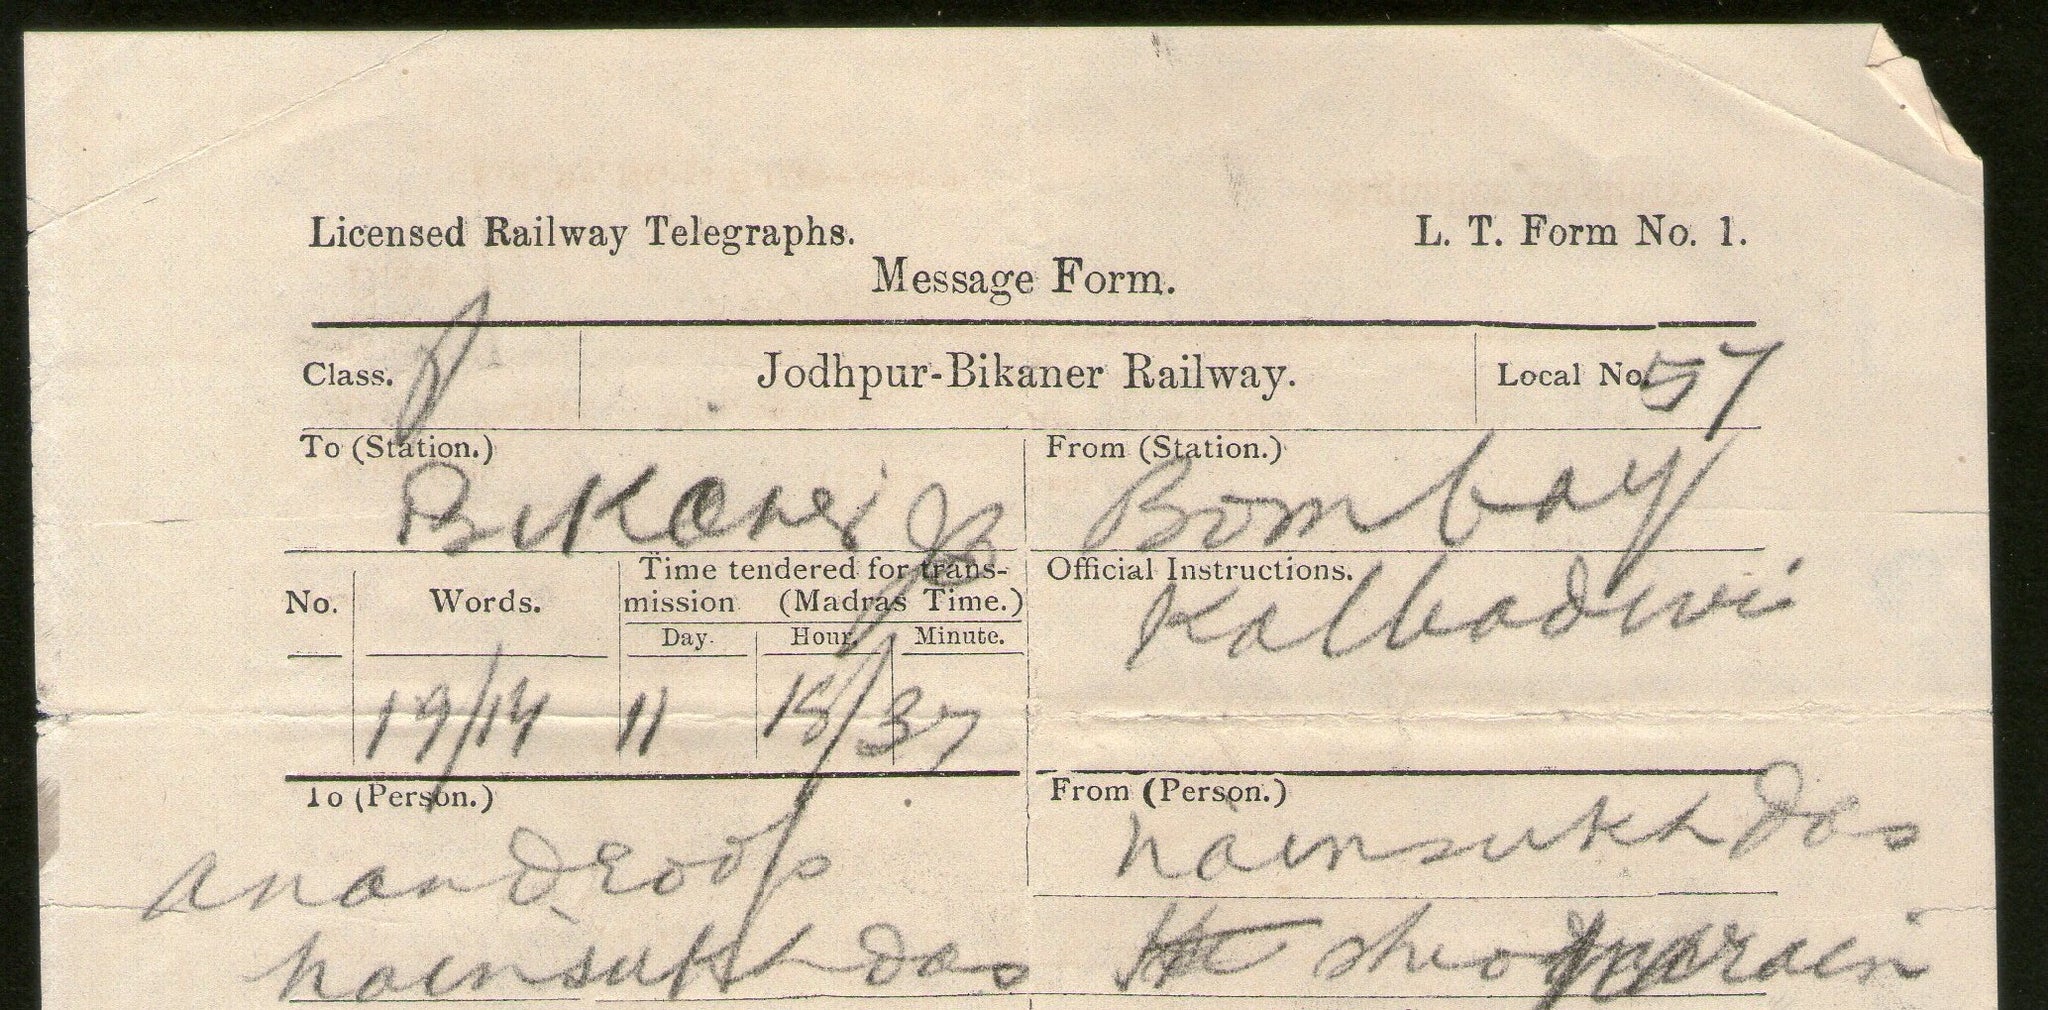 Licensed Railway Telegraphs. L. T. Form No. 1.
Message Form.
Class. P Jodhpur-Bikaner Railway. Local No. 57
To (Station.) From (Station.)
Bikaner Bombay
No. Words. Time tendered for trans- Official Instructions.
mission (Madras Time.) Kalbadevi
Day. Hour. Minute.
19/14 11 18/37
To (Person.) From (Person.)
anandroop nainsukhdas
nainsukhdas